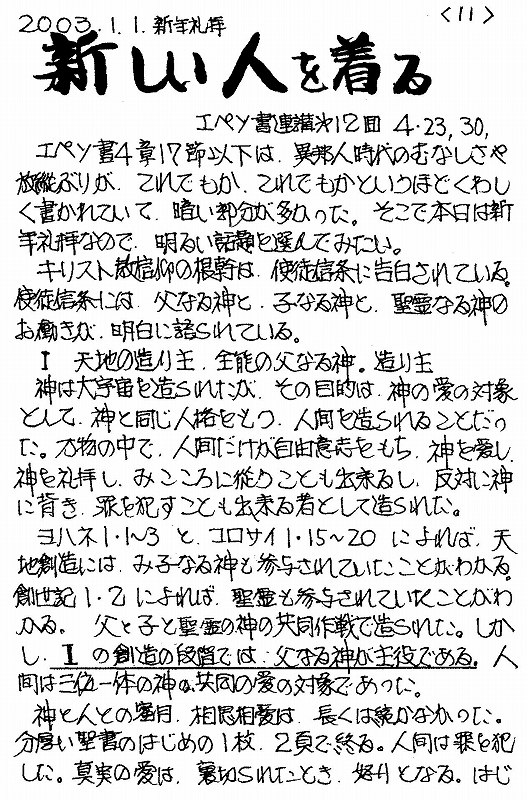 2003.1.1.新年礼拝 <11>
新しい人を着る
エペソ書連講㐧12回 4・23,30,
エペソ書4章17節以下は、異邦人時代のむなしさや
放縦ぶりが、これでもか、これでもかというほどくわし
く書かれていて、暗い部分が多かった。そこで本日は新
年礼拝なので、明るい話題を選んでみたい。
キリスト教信仰の根幹は、使徒信条に告白されている。
使徒信条には、父なる神と、子なる神と、聖霊なる神の
お働きが、明白に語られている。
I 天地の造り主、全能の父なる神。造り主
神は大宇宙を造られたが、その目的は、神の愛の対象
として、神と同じ人格をもつ、人間を造られることだっ
た。万物の中で、人間だけが自由意志をもち、神を愛し、
神を礼拝し、みこころに従うことも出来るし、反対に神
に背き、罪を犯すことも出来る者として造られた。
ヨハネ1・1~3 と、コロサイ1・15~20 によれば、天
地創造には、み子なる神も参与されていたことがわかる。
創世記1・2によれば、聖霊も参与されていたことがわ
かる。 父と子と聖霊の神の共同作戦で造られた。しか
し、Iの創造の段階では、父なる神が主役である。人
間は三位一体の神の、共同の愛の対象であった。
神と人との蜜月、相思相愛は、長くは続かなかった。
分厚い聖書のはじめの1枚、2頁で終る。人間は罪を犯
した。真実の愛は、裏切られたとき、怒りとなる。はじ